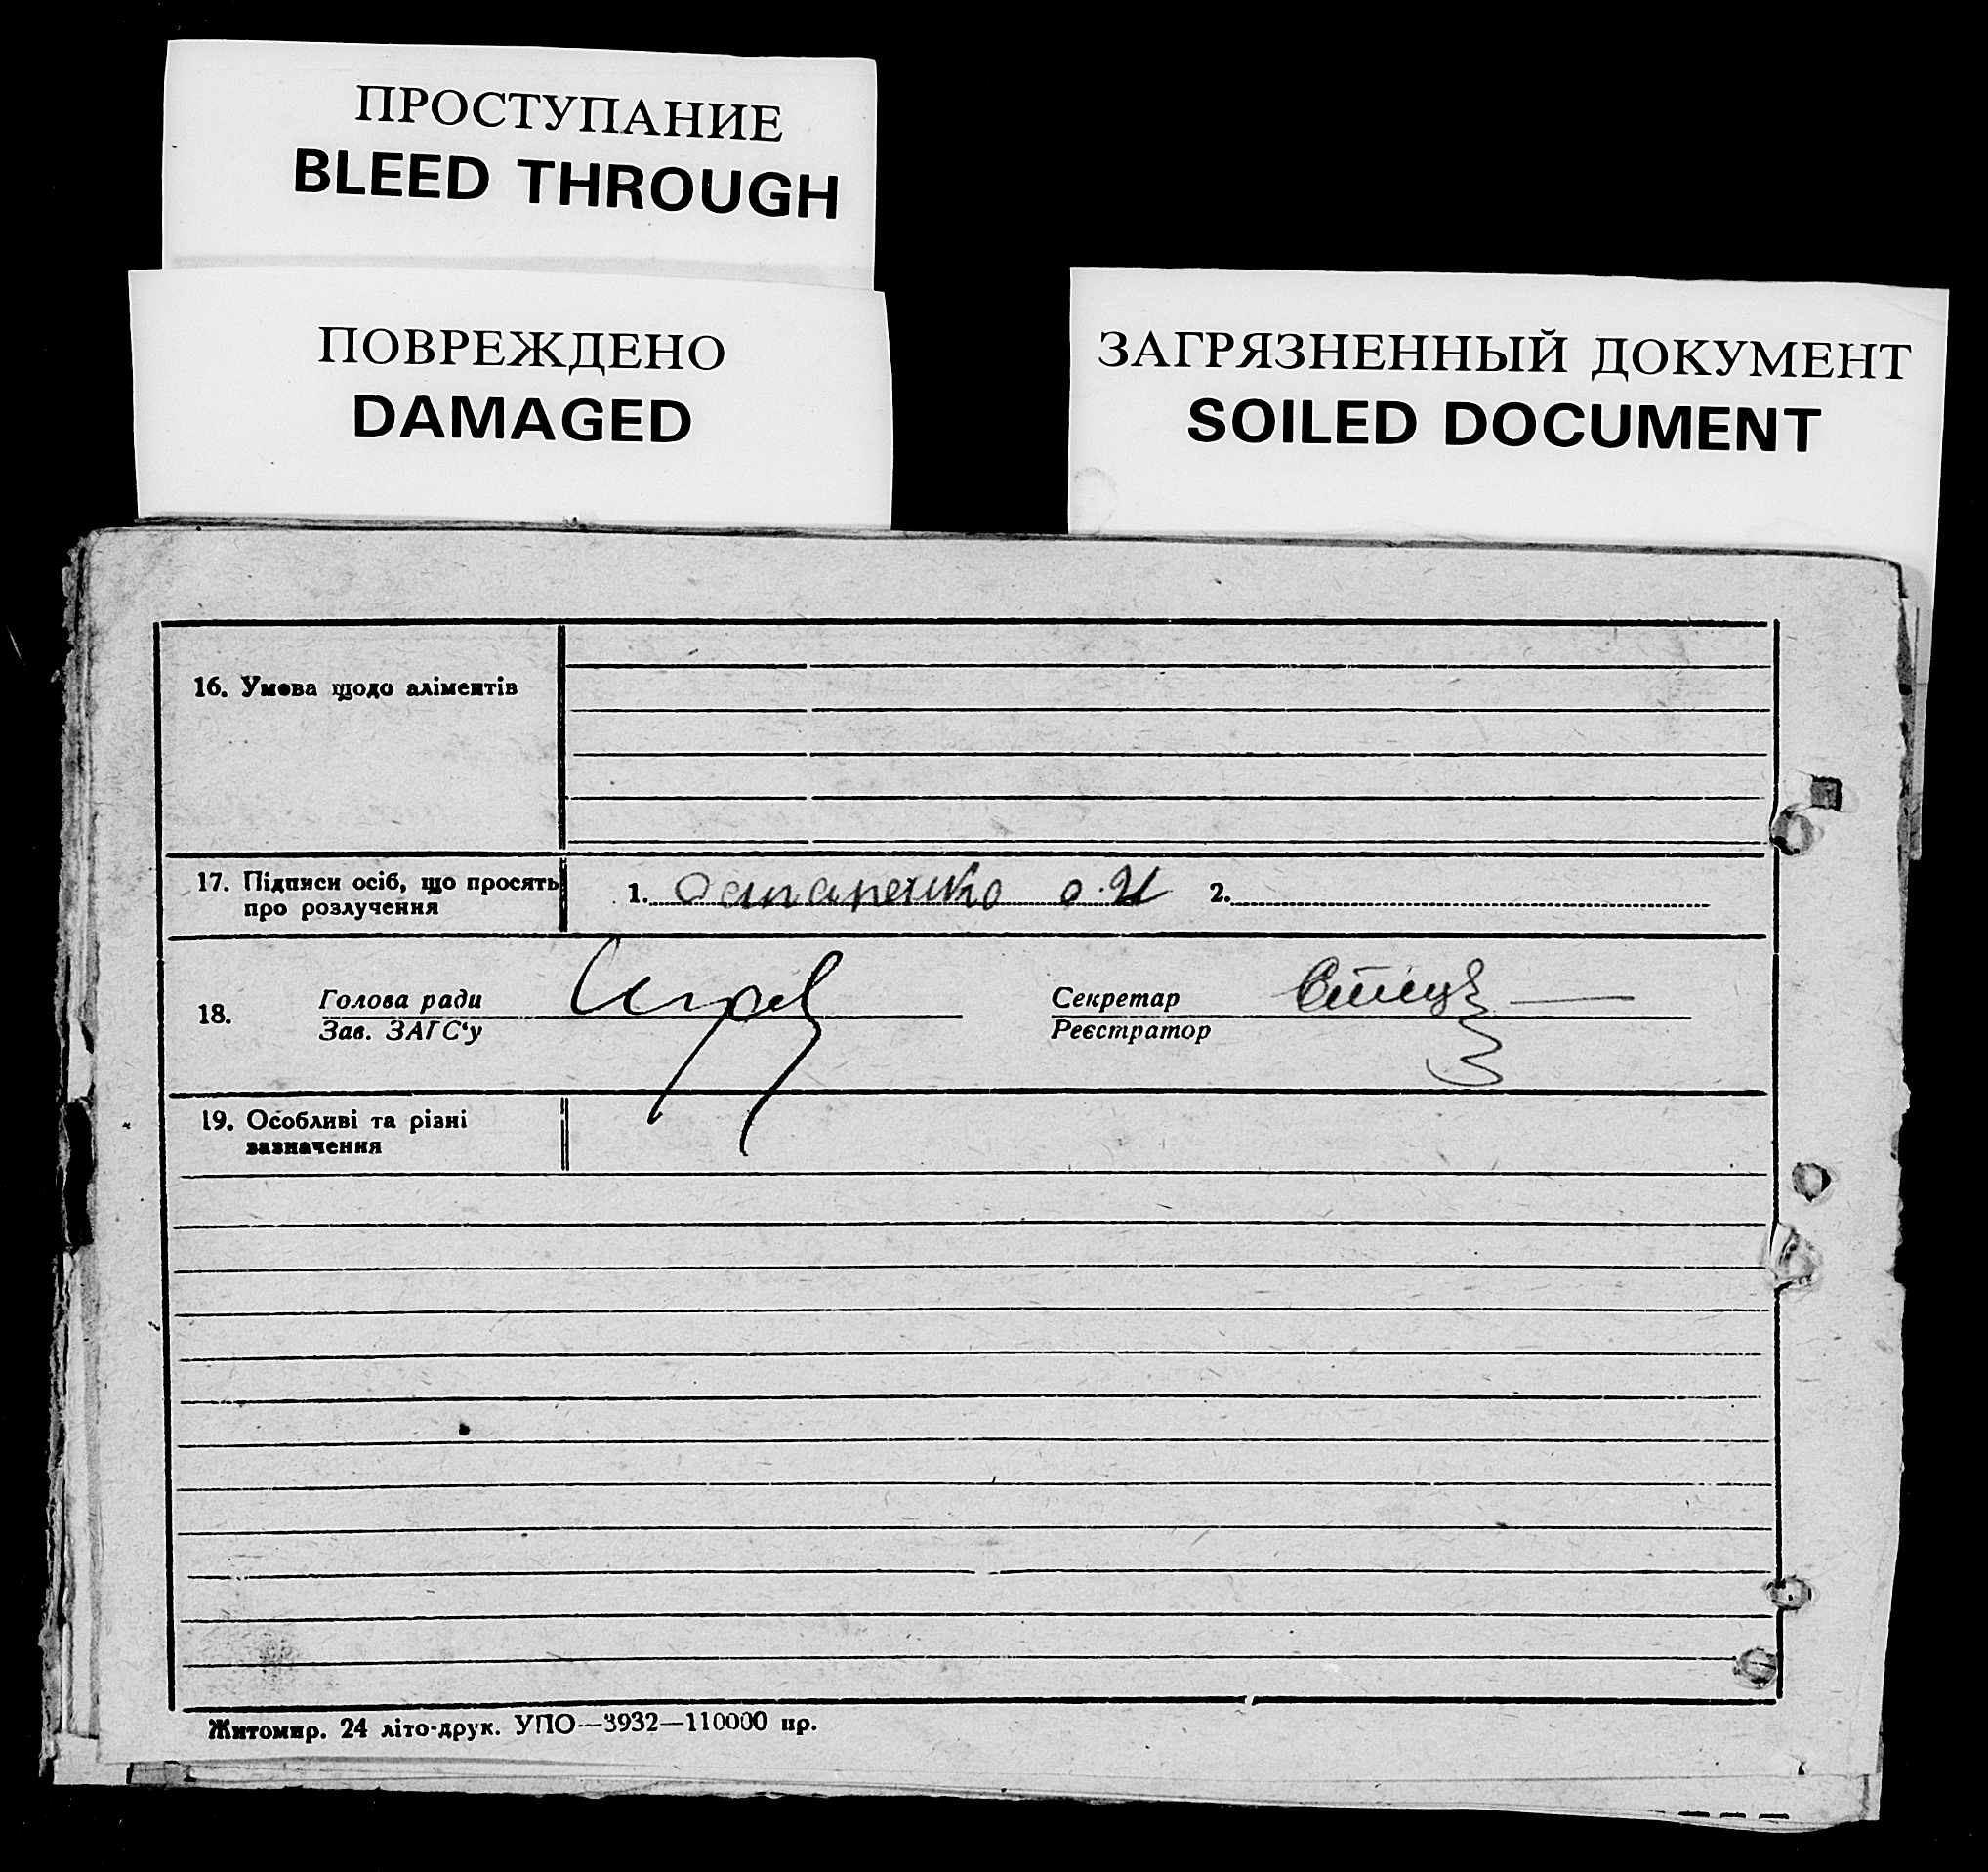 ПРОСТУПАНИЕ
BLEED THROUGH
ПОВРЕЖДЕНО
DAMAGED
ЗАГРЯЗНЕННЫЙ ДОКУМЕНТ
SOILED DOCUMENT
16. Умова щодо аліментів
17. Підписи осіб, що просять про розлучення
1. Остапенко О. И 2.
18.
Голова ради
Зав. ЗАГС‘у
Секретар
Реєстратор
19. Особливі та різні
зазначення
Житомир. 24 літо-друк. УПО—3932—110000 пр.